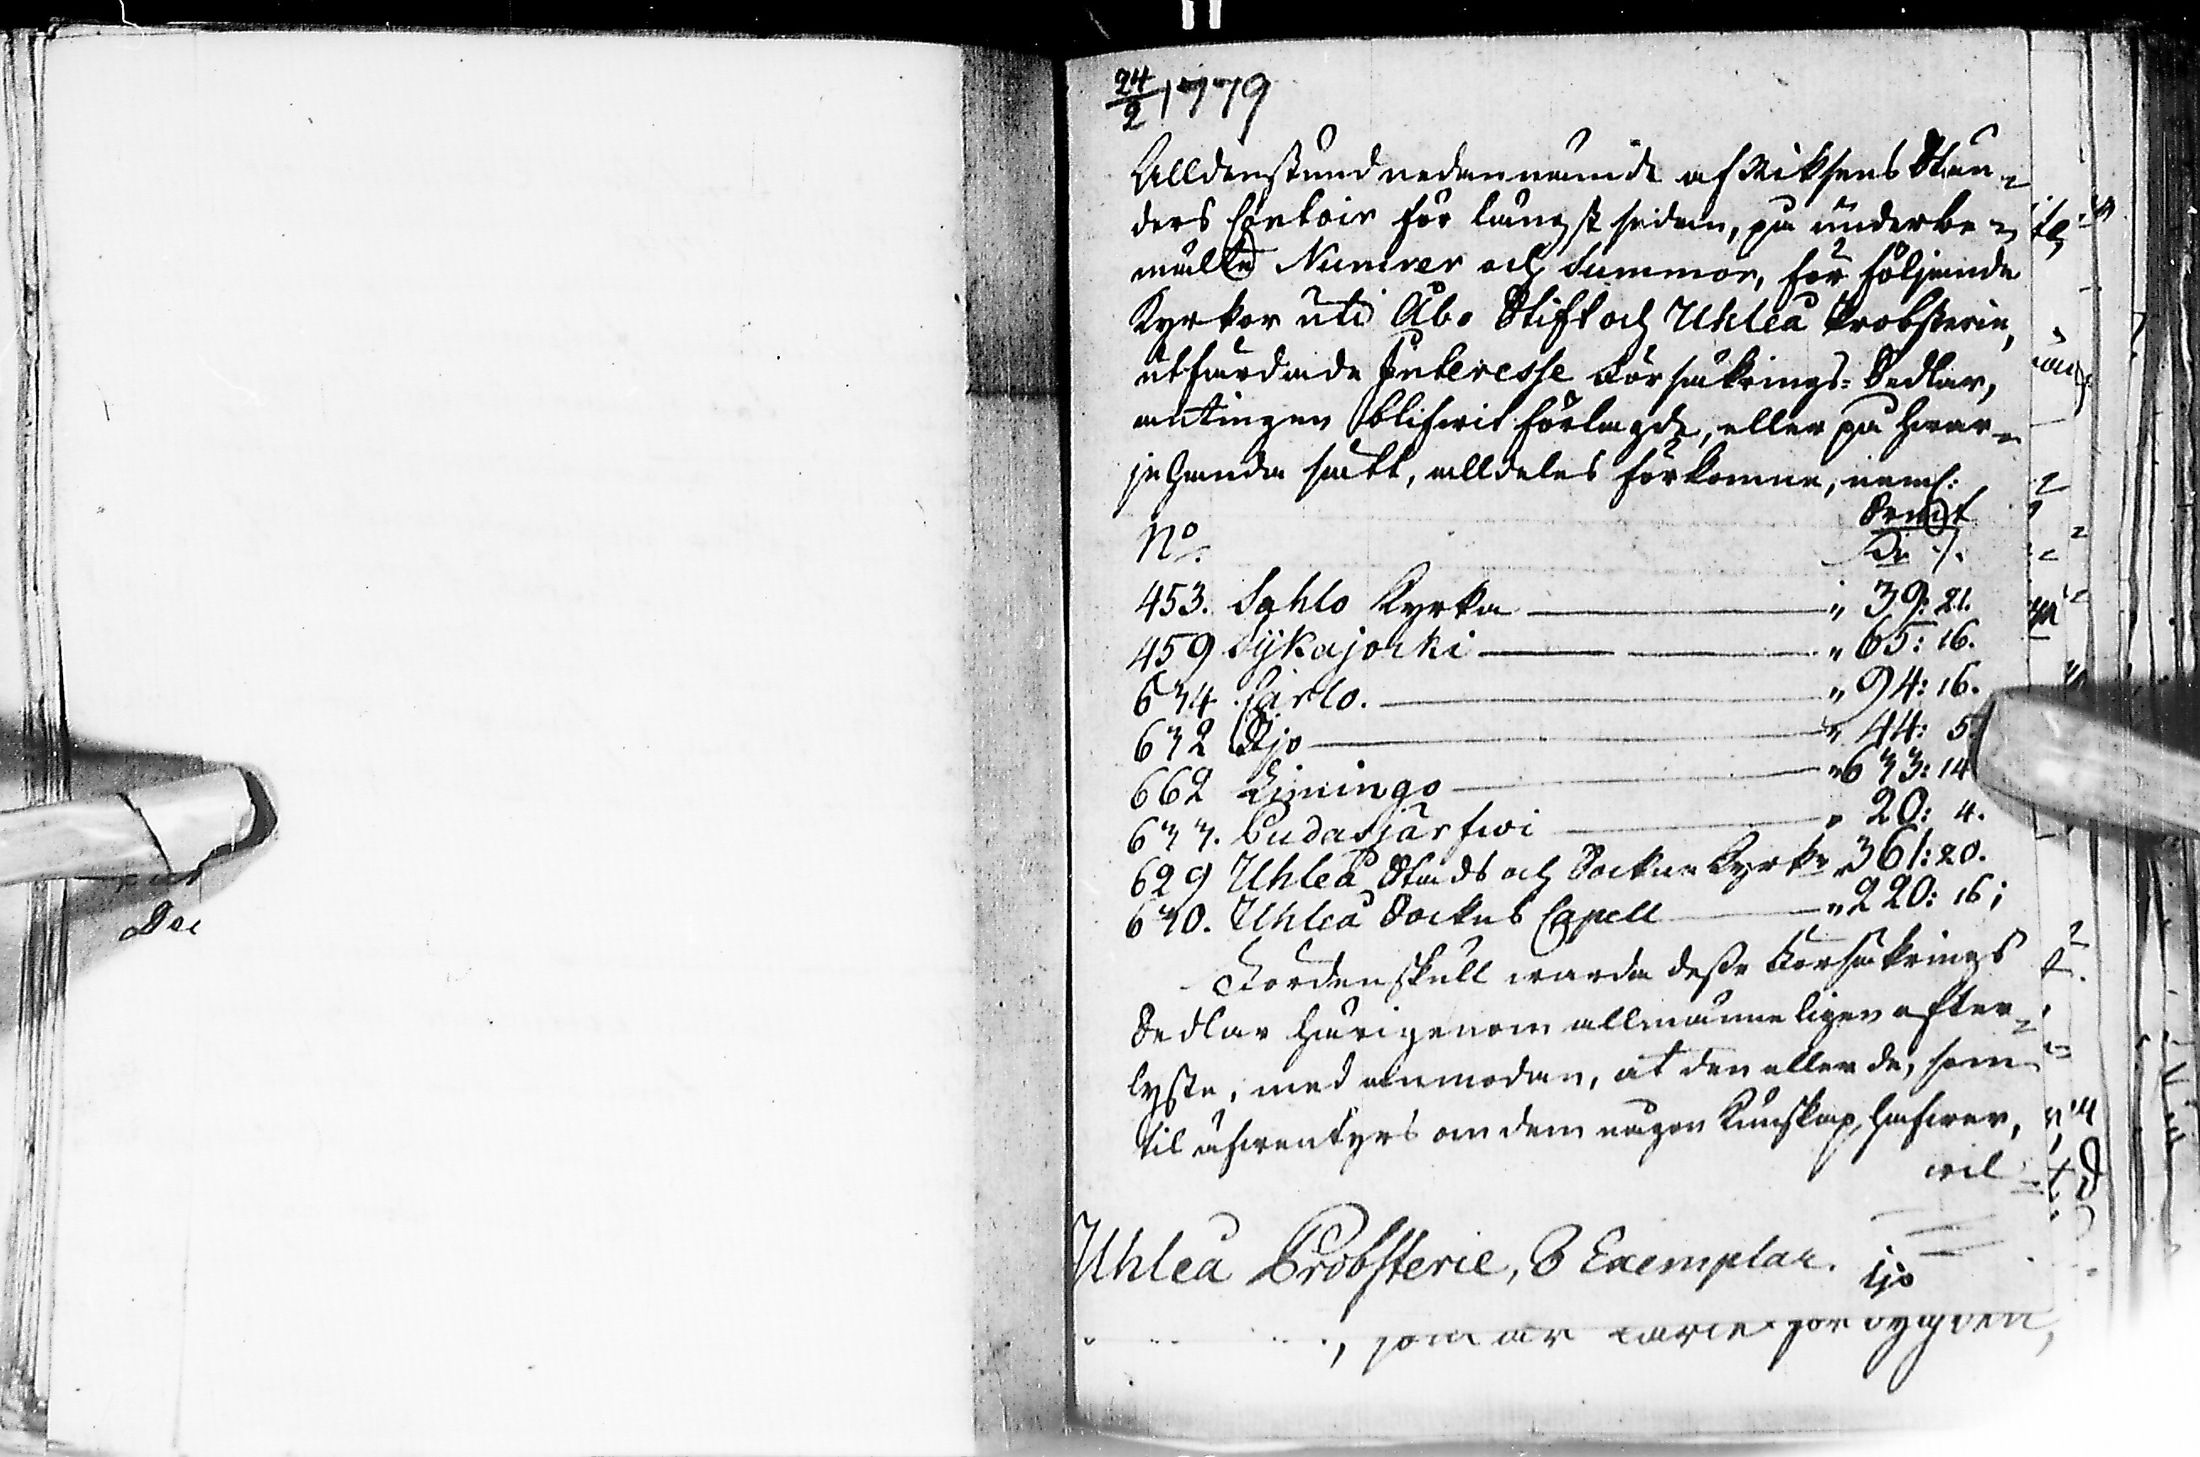 24/2 1779
Alldenstund nedannämnde af Riksens Stän-
ders Contoir för längst sedan, på underbe-
mälte Numrer och Summor, för följande
Kyrkor uti Åbo Stift och Uhleå Probsterie,
utfärdade Interesse Försäkrings-Sedlar,
antingen blifwit förlagde, eller på hwar-
jehanda sätt, alldeles förkomne, neml:
No.
453. Sahlo Kyrka — " 39: 21.
459 Sijkajocki — " 65: 16.
634 Carlo. — " 94: 16.
632 Ijo — " 44: 5.
662 Limingo — " 633: 14
633. Pudasjärfwi — " 20: 4.
629 Uhleå Stads och Sockne Kyrka " 361: 20.
630. Uhleå Sockns Capell — " 220: 16;
Fördenskull warda desse Försäkrings
Sedlar härigenom allmänneligen efter-
lyste, med anmodan, at den eller de, som
til äfwentyrs om dem någon kunskap hafwer,
wil
Uhleå Probsterie, 3 Exemplar. Ijo
som är
Dec